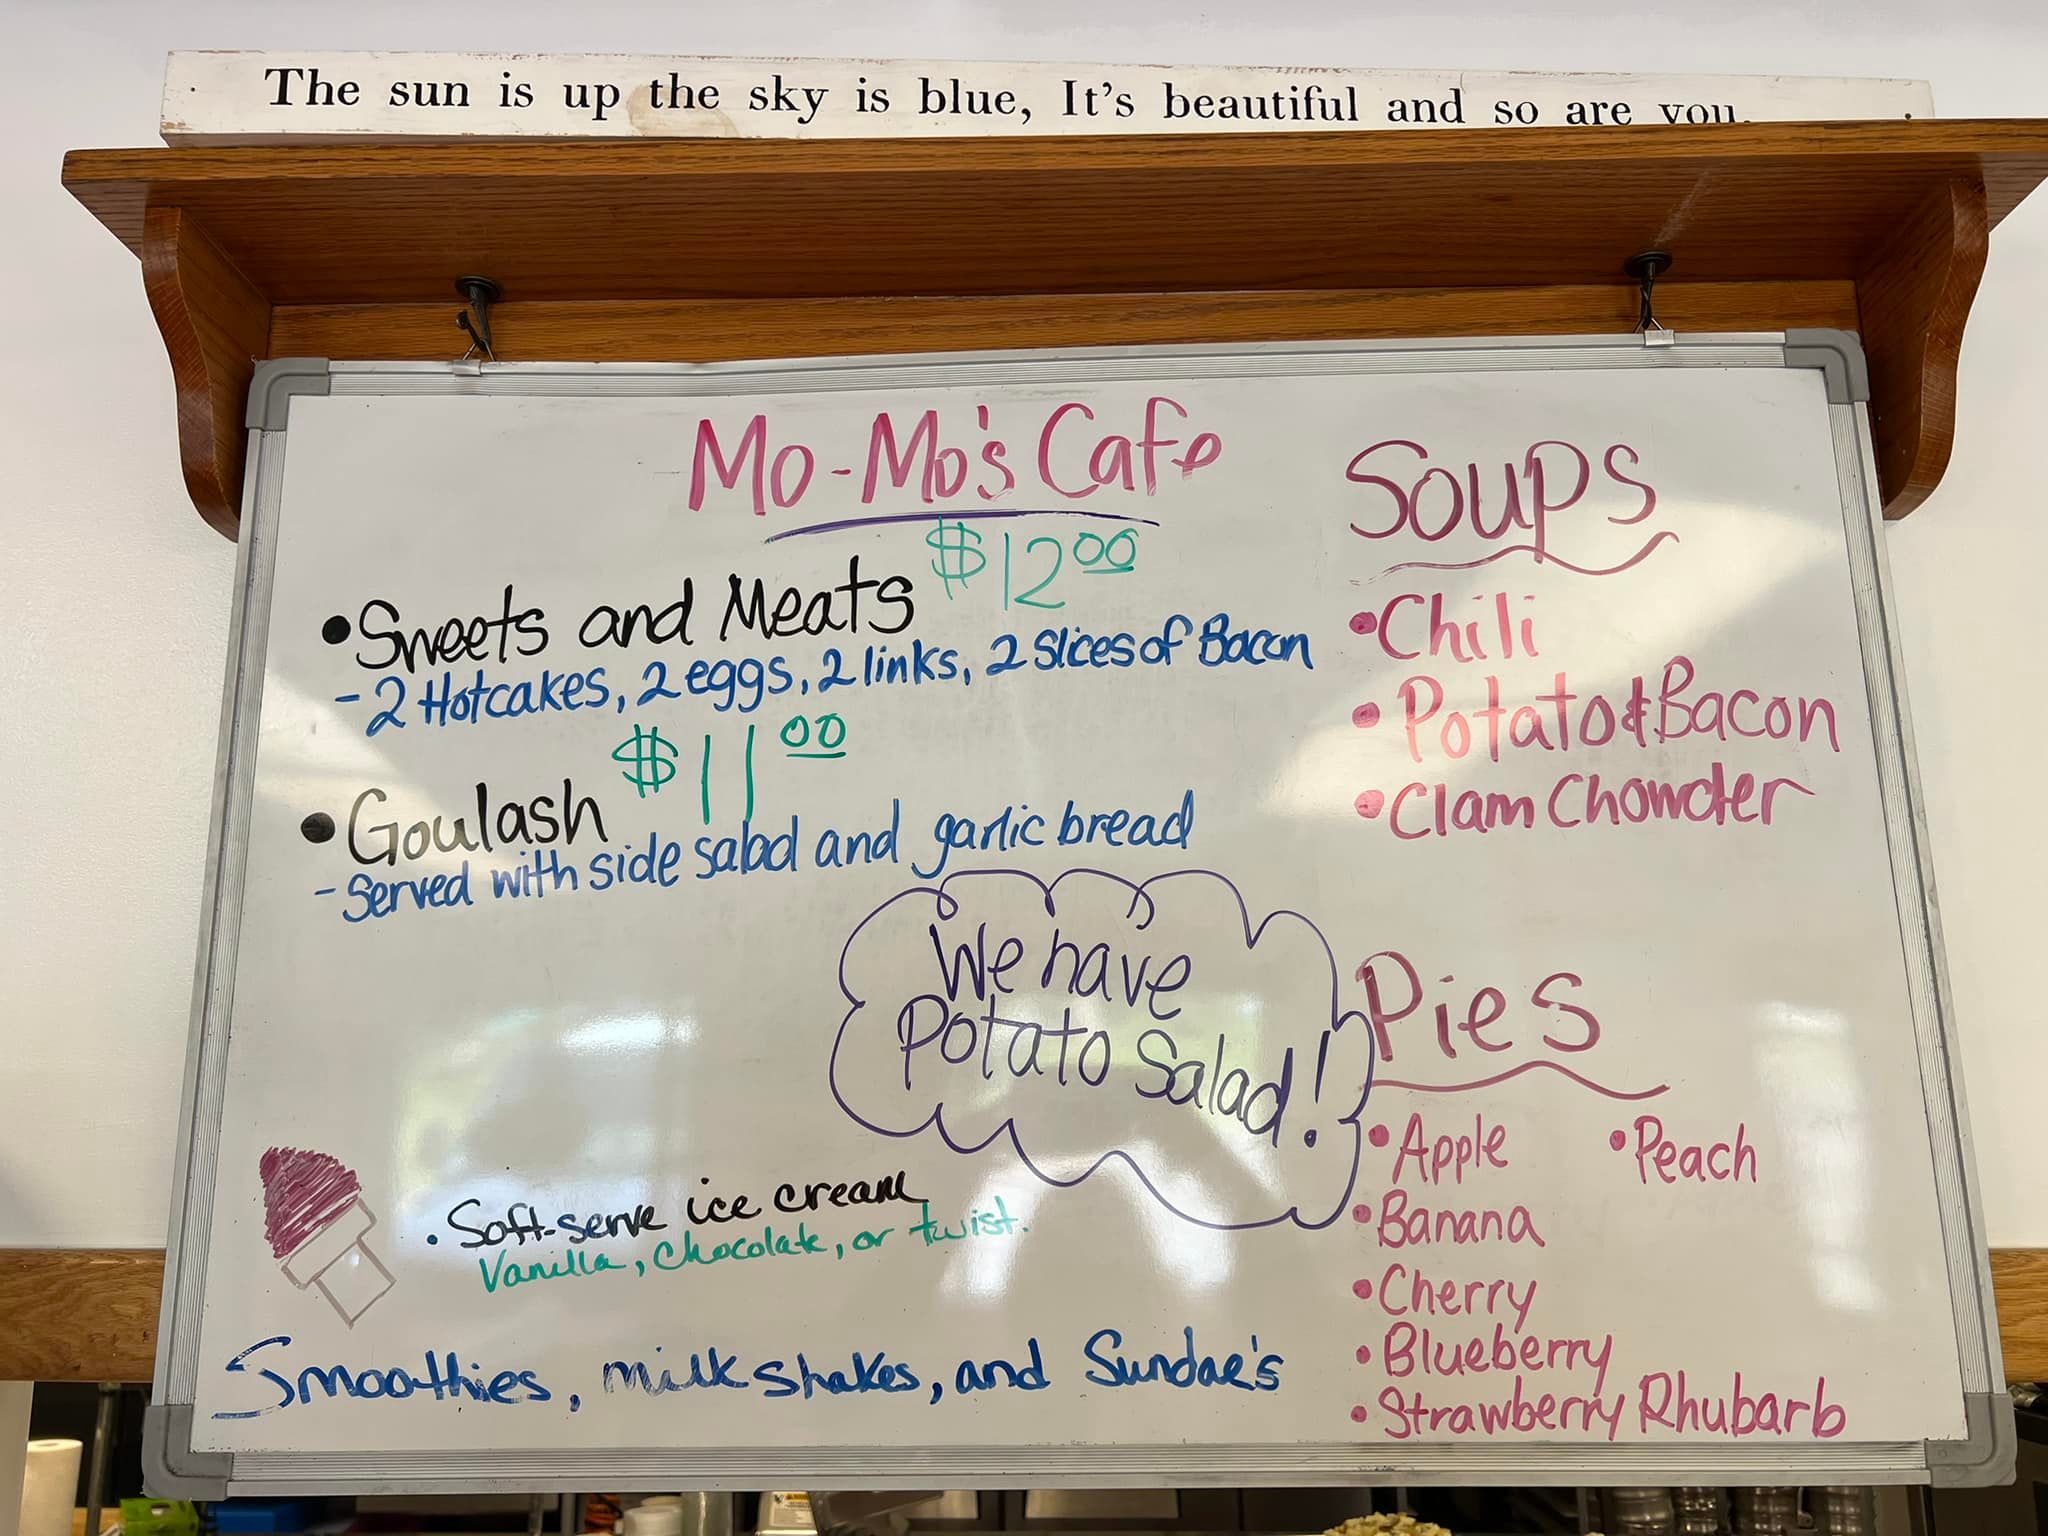 The sun is up the sky is blue, It's beautiful and so are you.
Mo-Mo's Cafe
• Sweets and Meats $12.00
- 2 Hotcakes, 2 eggs, 2 links, 2 slices of Bacon
• Goulash $11.00
- Served with side salad and garlic bread
We have
Potato Salad!
• Soft-serve ice cream
Vanilla, Chocolate, or twist.
Smoothies, milkshakes, and Sundae's
Soups
• Chili
• Potato & Bacon
• Clam Chowder
Pies
• Apple • Peach
• Banana
• Cherry
• Blueberry
• Strawberry Rhubarb